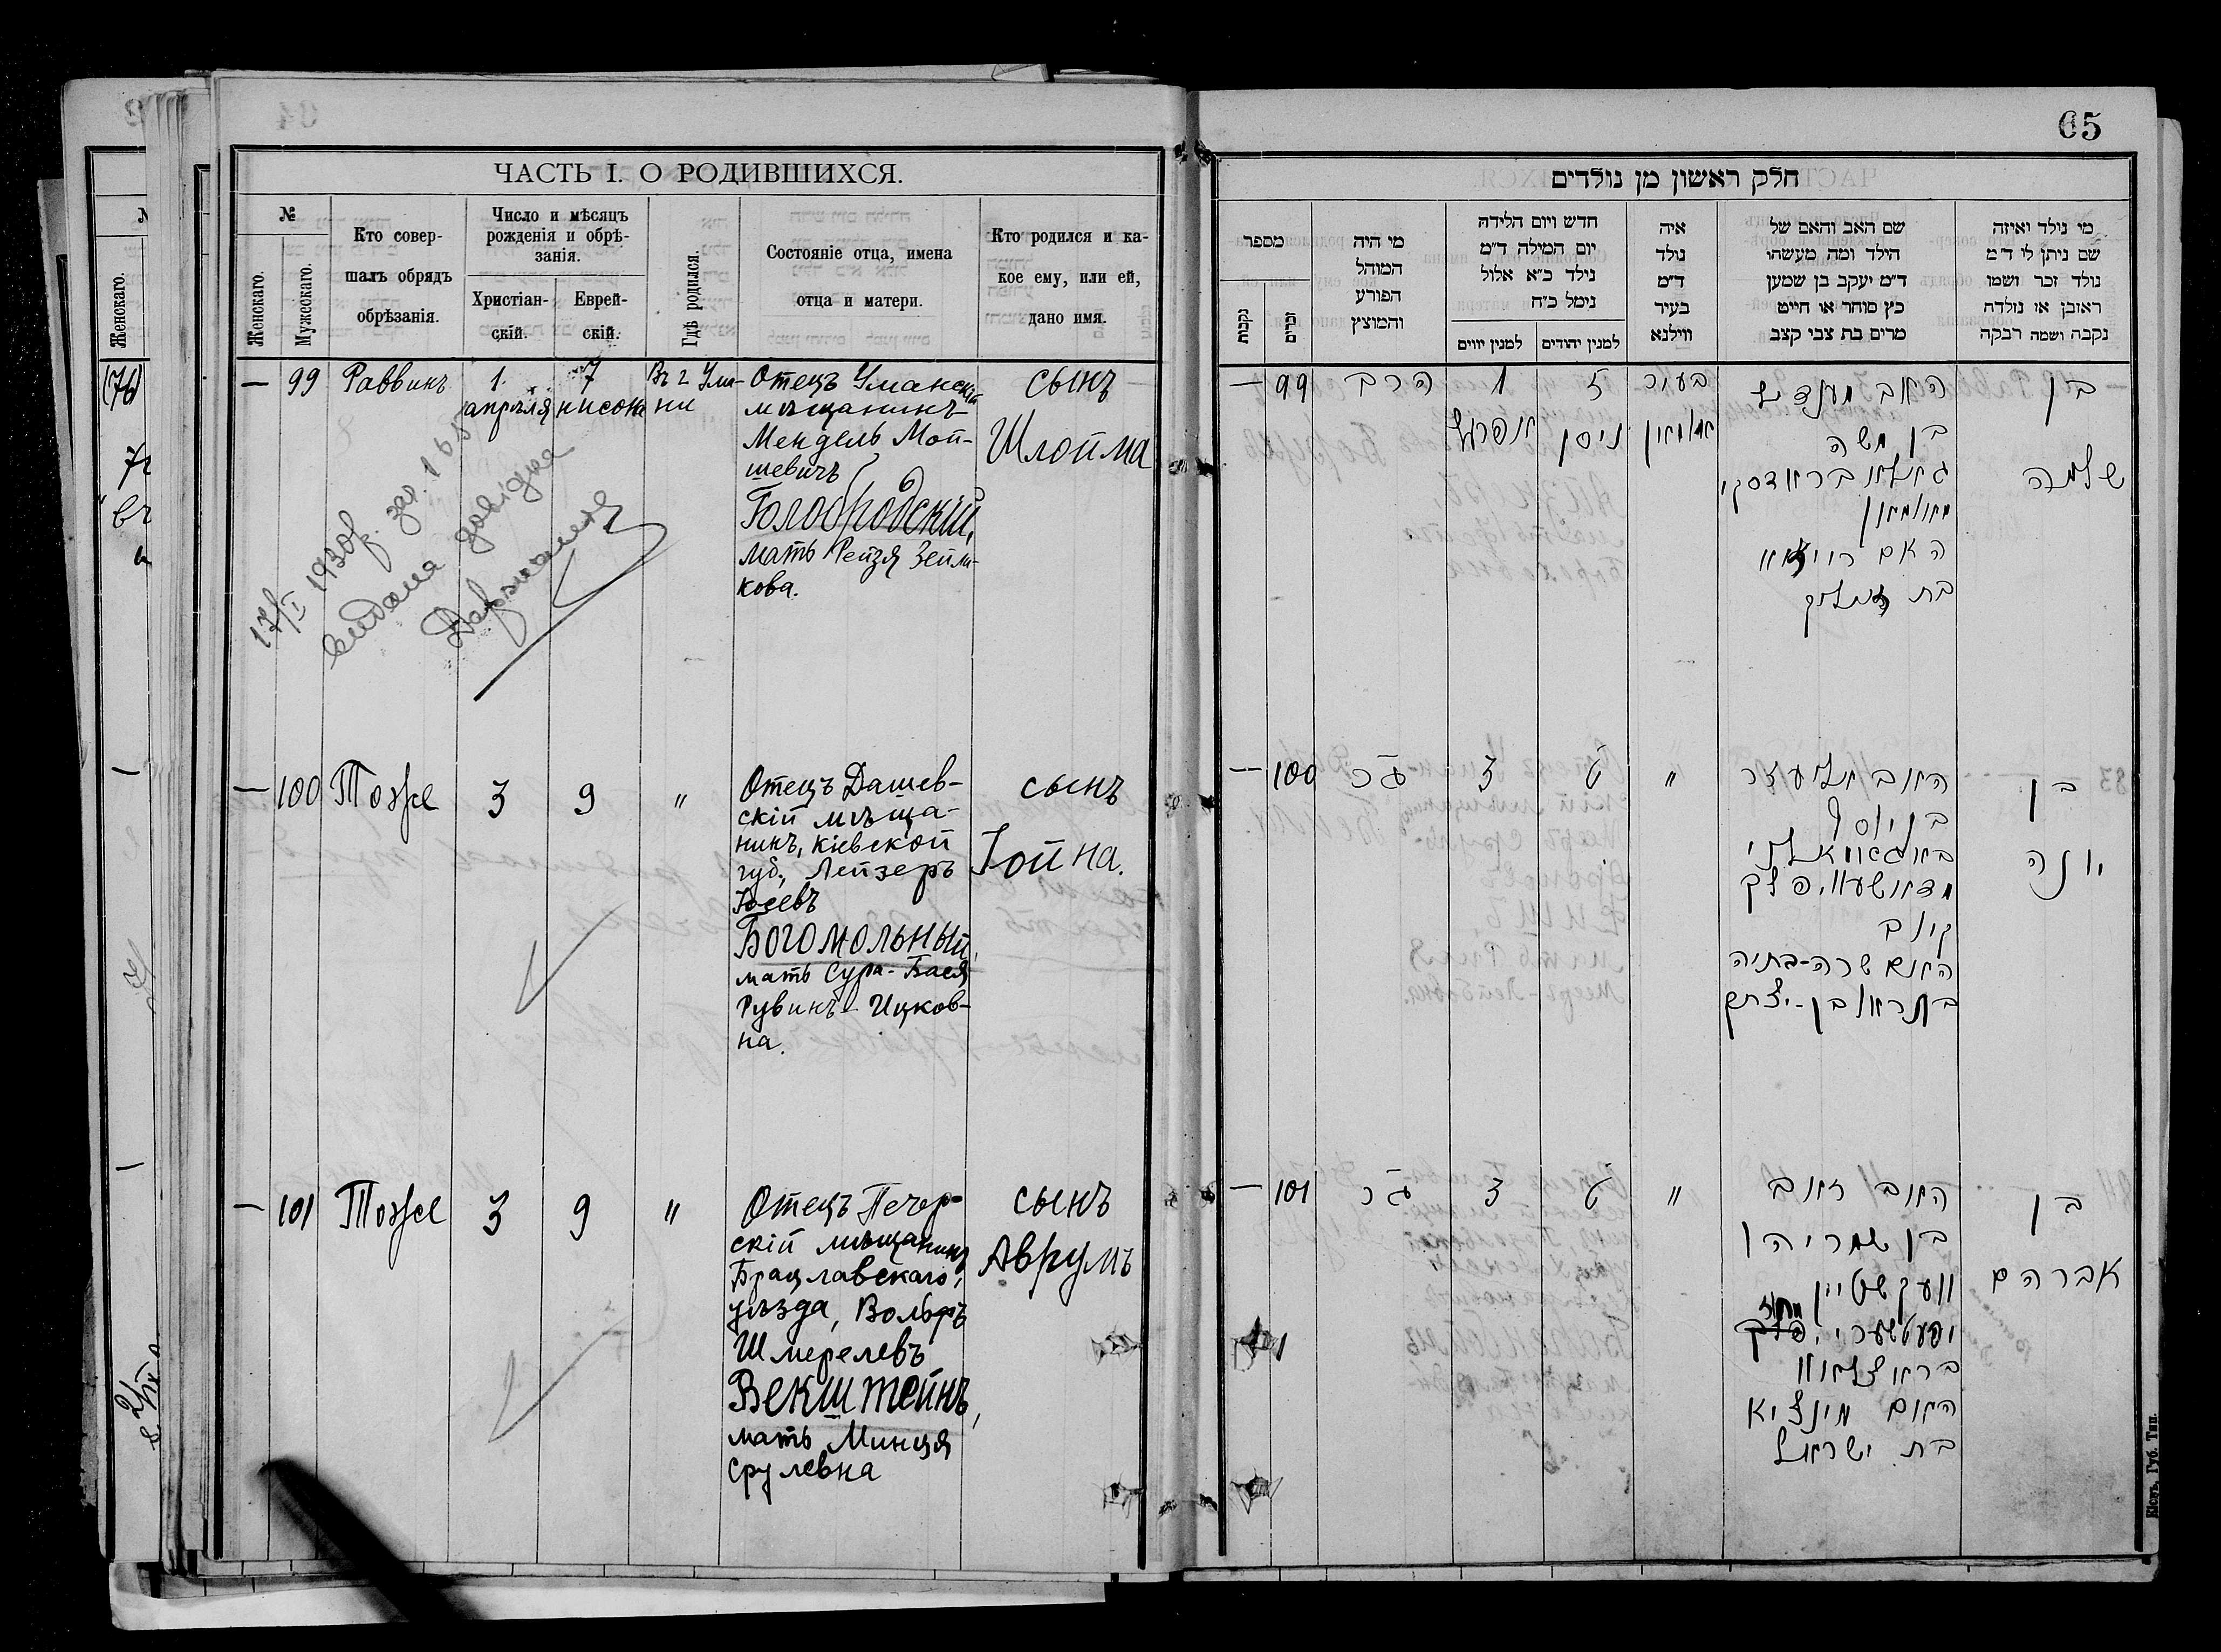 65
ЧАСТЬ I. О РОДИВШИХСЯ.
№
Женскаго.
Мужескаго.
Кто совер-
шалъ обрядъ
обрѣзанія.
Число и мѣсяцъ
рожденія и обрѣ-
занія.
Христіан-
скій.
Еврей-
скій.
Гдѣ родился.
Состояніе отца, имена
отца и матери.
Кто родился и ка-
кое ему, или ей,
дано имя.
— 99 Раввинъ
1 апрѣля
7 нисона
Въ г. Ума-
ни
Отецъ Уманскій
мѣщанинъ
Мендель Мой-
шевичъ
Голобродскій,
мать Рейзя Зейли-
кова.
сынъ
Шлойма
17/I 1930 р.
видана довідка
— 100 Тоже
3
9
"
Отецъ Дашев-
скій мѣща-
нинъ, Кіевской
губ., Лейзеръ
Юсевъ
Богомольный,
мать Сура-Бася
Рувинъ-Ицков-
на.
сынъ
Іойна.
— 101 Тоже
3
9
"
Отецъ Печер-
скій мѣщанинъ
Брацлавскаго,
уѣзда, Вольфъ
Шмерелевъ
Векштейнъ,
мать Минця
Срулевна
сынъ
Аврумъ
Женскаго.
חלק ראשון מן נולדים
מספר
נקבות
זכרים
מי היה
המוהל
הפורע
והמוצץ
חדש ויום הלידה
יום המילה ד"מ
נילד כ"א אלול
נימל כ"ח
למנין יווים
למנין יהודים
איה
נולד
ד"מ
בעיר
ווילנא
שם האב והאם של
הילד ומה מעשהו
ד"מ יעקב בן שמען
כץ סוחר או חייט
מרים בת צבי קצב
מי נילד ואיזה
שם ניתן לו ד"מ
נולד זכר ושמו
ראובן או נולדה
נקבה ושמה רבקה
— 99
הרב
1
אפריל
ז
ניסן
בעיר
אומאן
האב מענדיל
בן משה
גאלאבראדסקי
מאומאן
האם רייזא
בת זעליק
בן
שלמה
— 100
3
ט
"
האב אליעזר
בן יוסף
באגאמאלני
קיוב
האם שרה-בתיה
בת ראובן-יצחק
בן
יונה
— 101
3
ט
"
האב זאב
בן שמריהו
וועקשטיין
בראצלאוו
האם מינציא
בת ישראל
בן
אברהם
Кіевъ. Губ. Тип.